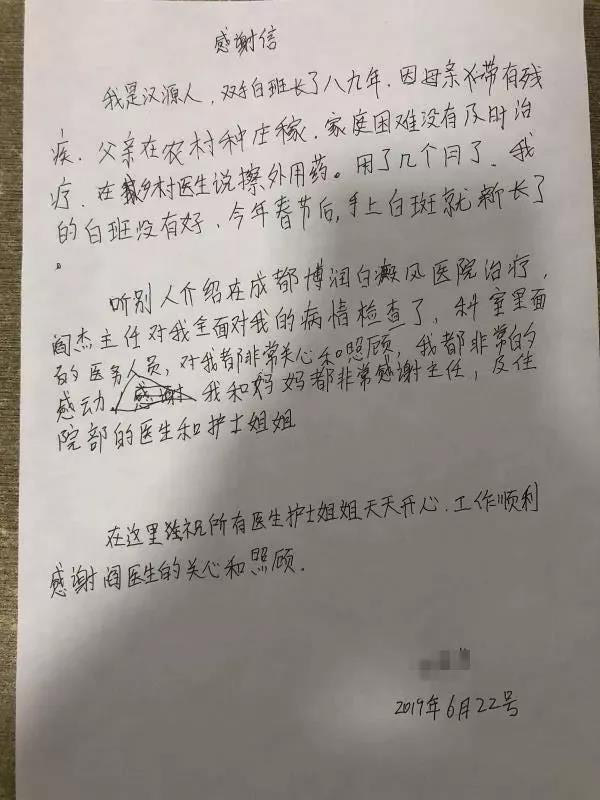 感谢信
我是汉源人，双手白班长了八九年．因母亲带有残
疾．父亲在农村种庄稼．家庭困难没有及时治
疗．在乡村医生说擦外用药。用了几个月了．我
的白班没有好．今年春节后，手上白斑就新长了
。
听别人介绍在成都博润白癜风医院治疗，
阎杰主任对我全面对我的病情检查了，科室里面
的医务人员，对我都非常关心和照顾，我都非常的
感动．我和妈妈都非常感谢主任，及住
院部的医生和护士姐姐
在这里祝所有医生护士姐姐天天开心．工作顺利
感谢阎医生的关心和照顾．
2019年6月22号